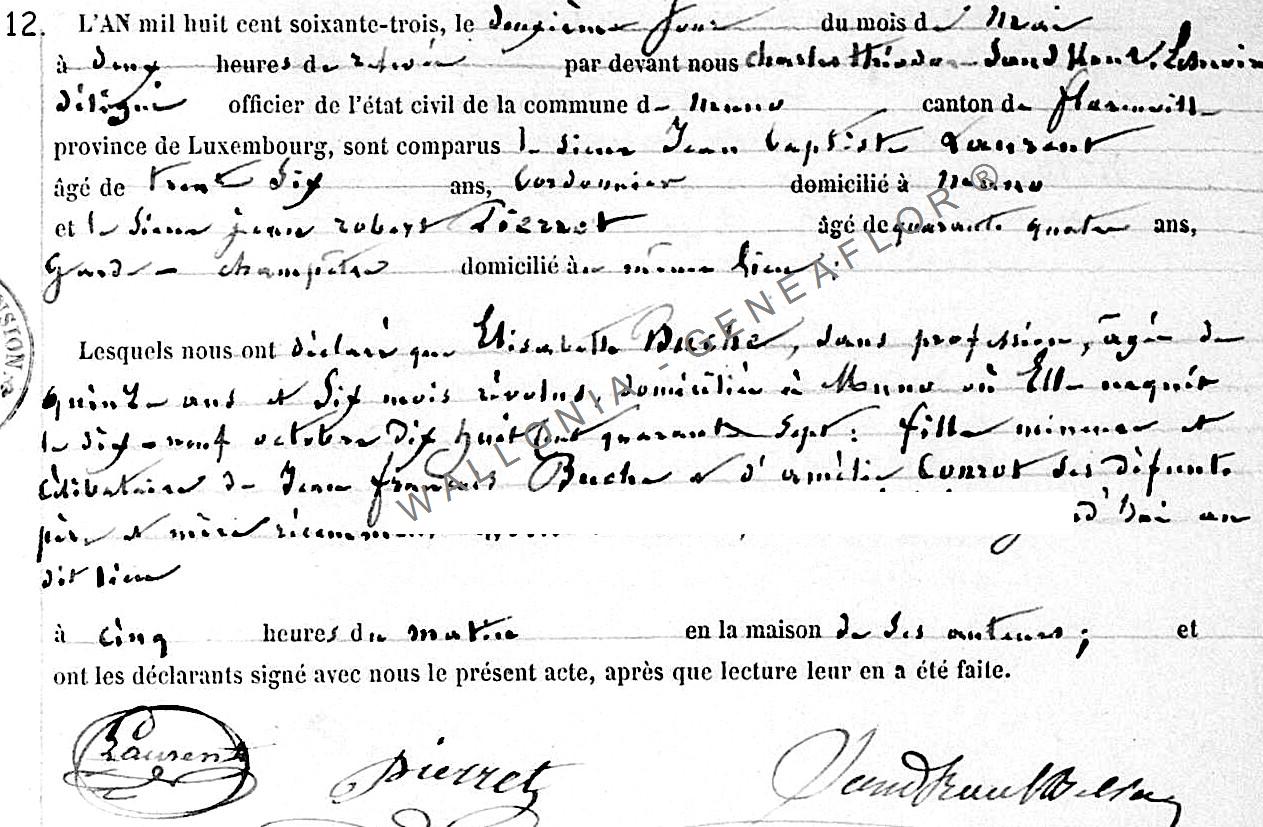 12. L'AN mil huit cent soixante-trois, le deuxième jour du mois de Mai
à deux heures de relevée par devant nous Charles théodore
délégué officier de l'état civil de la commune de muno, canton de florenville
province de Luxembourg, sont comparus le sieur Jean Baptiste Laurent
âgé de trente Six ans, Cordonnier domicilié à Muno
et le Sieur jean robert Pierret âgé de quarante quatre ans,
Garde champêtre domicilié à même lieu;
Lesquels nous ont déclaré que Elisabette Buche, sans profession, âgée de
quinze ans et Six mois révolus, domiciliée à Muno où Elle naquit
le dix-neuf octobre dix huit cent quarante Sept: fille mineure et
célibataire de Jean françois Buche et d'amélie Conrot ses défunts
père et mère d'hui au
dit lieu
à cinq heures du matin en la maison de ses auteurs; et
ont les déclarants signé avec nous le présent acte, après que lecture leur en a été faite.
Laurent Pierret
WALLONIA - GENEAFLOR ®
NSION